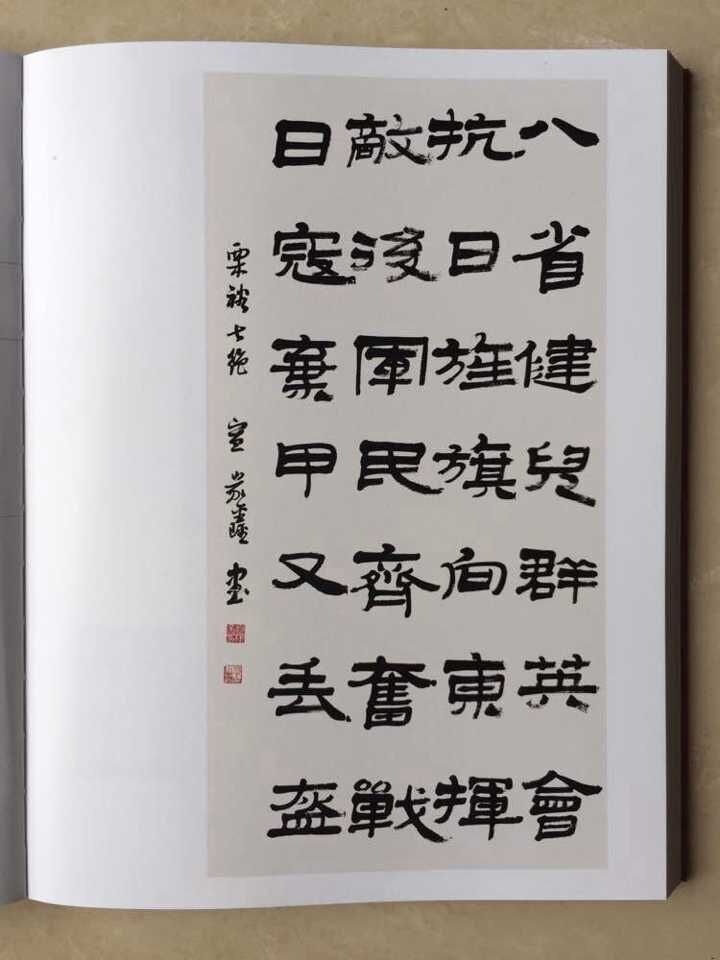 八省健兒群英會
抗日旌旗向東揮
敵後軍民齊奮戰
日寇棄甲又丢盔
粟裕七絶 宣家鑫書